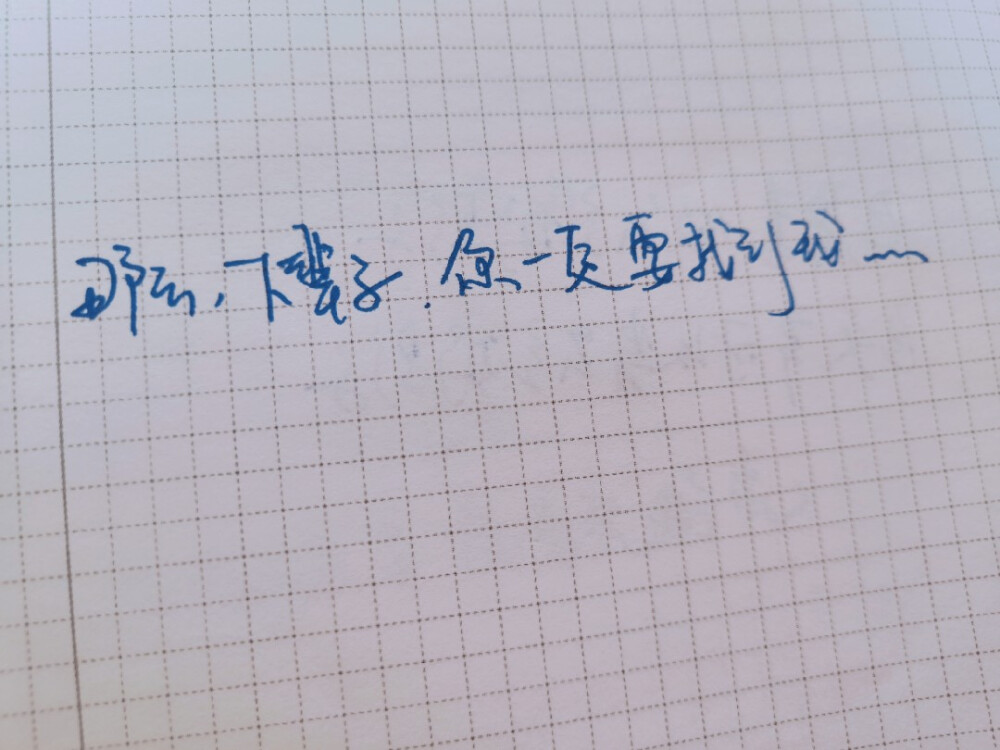 那么，下辈子，您一定要找到我……